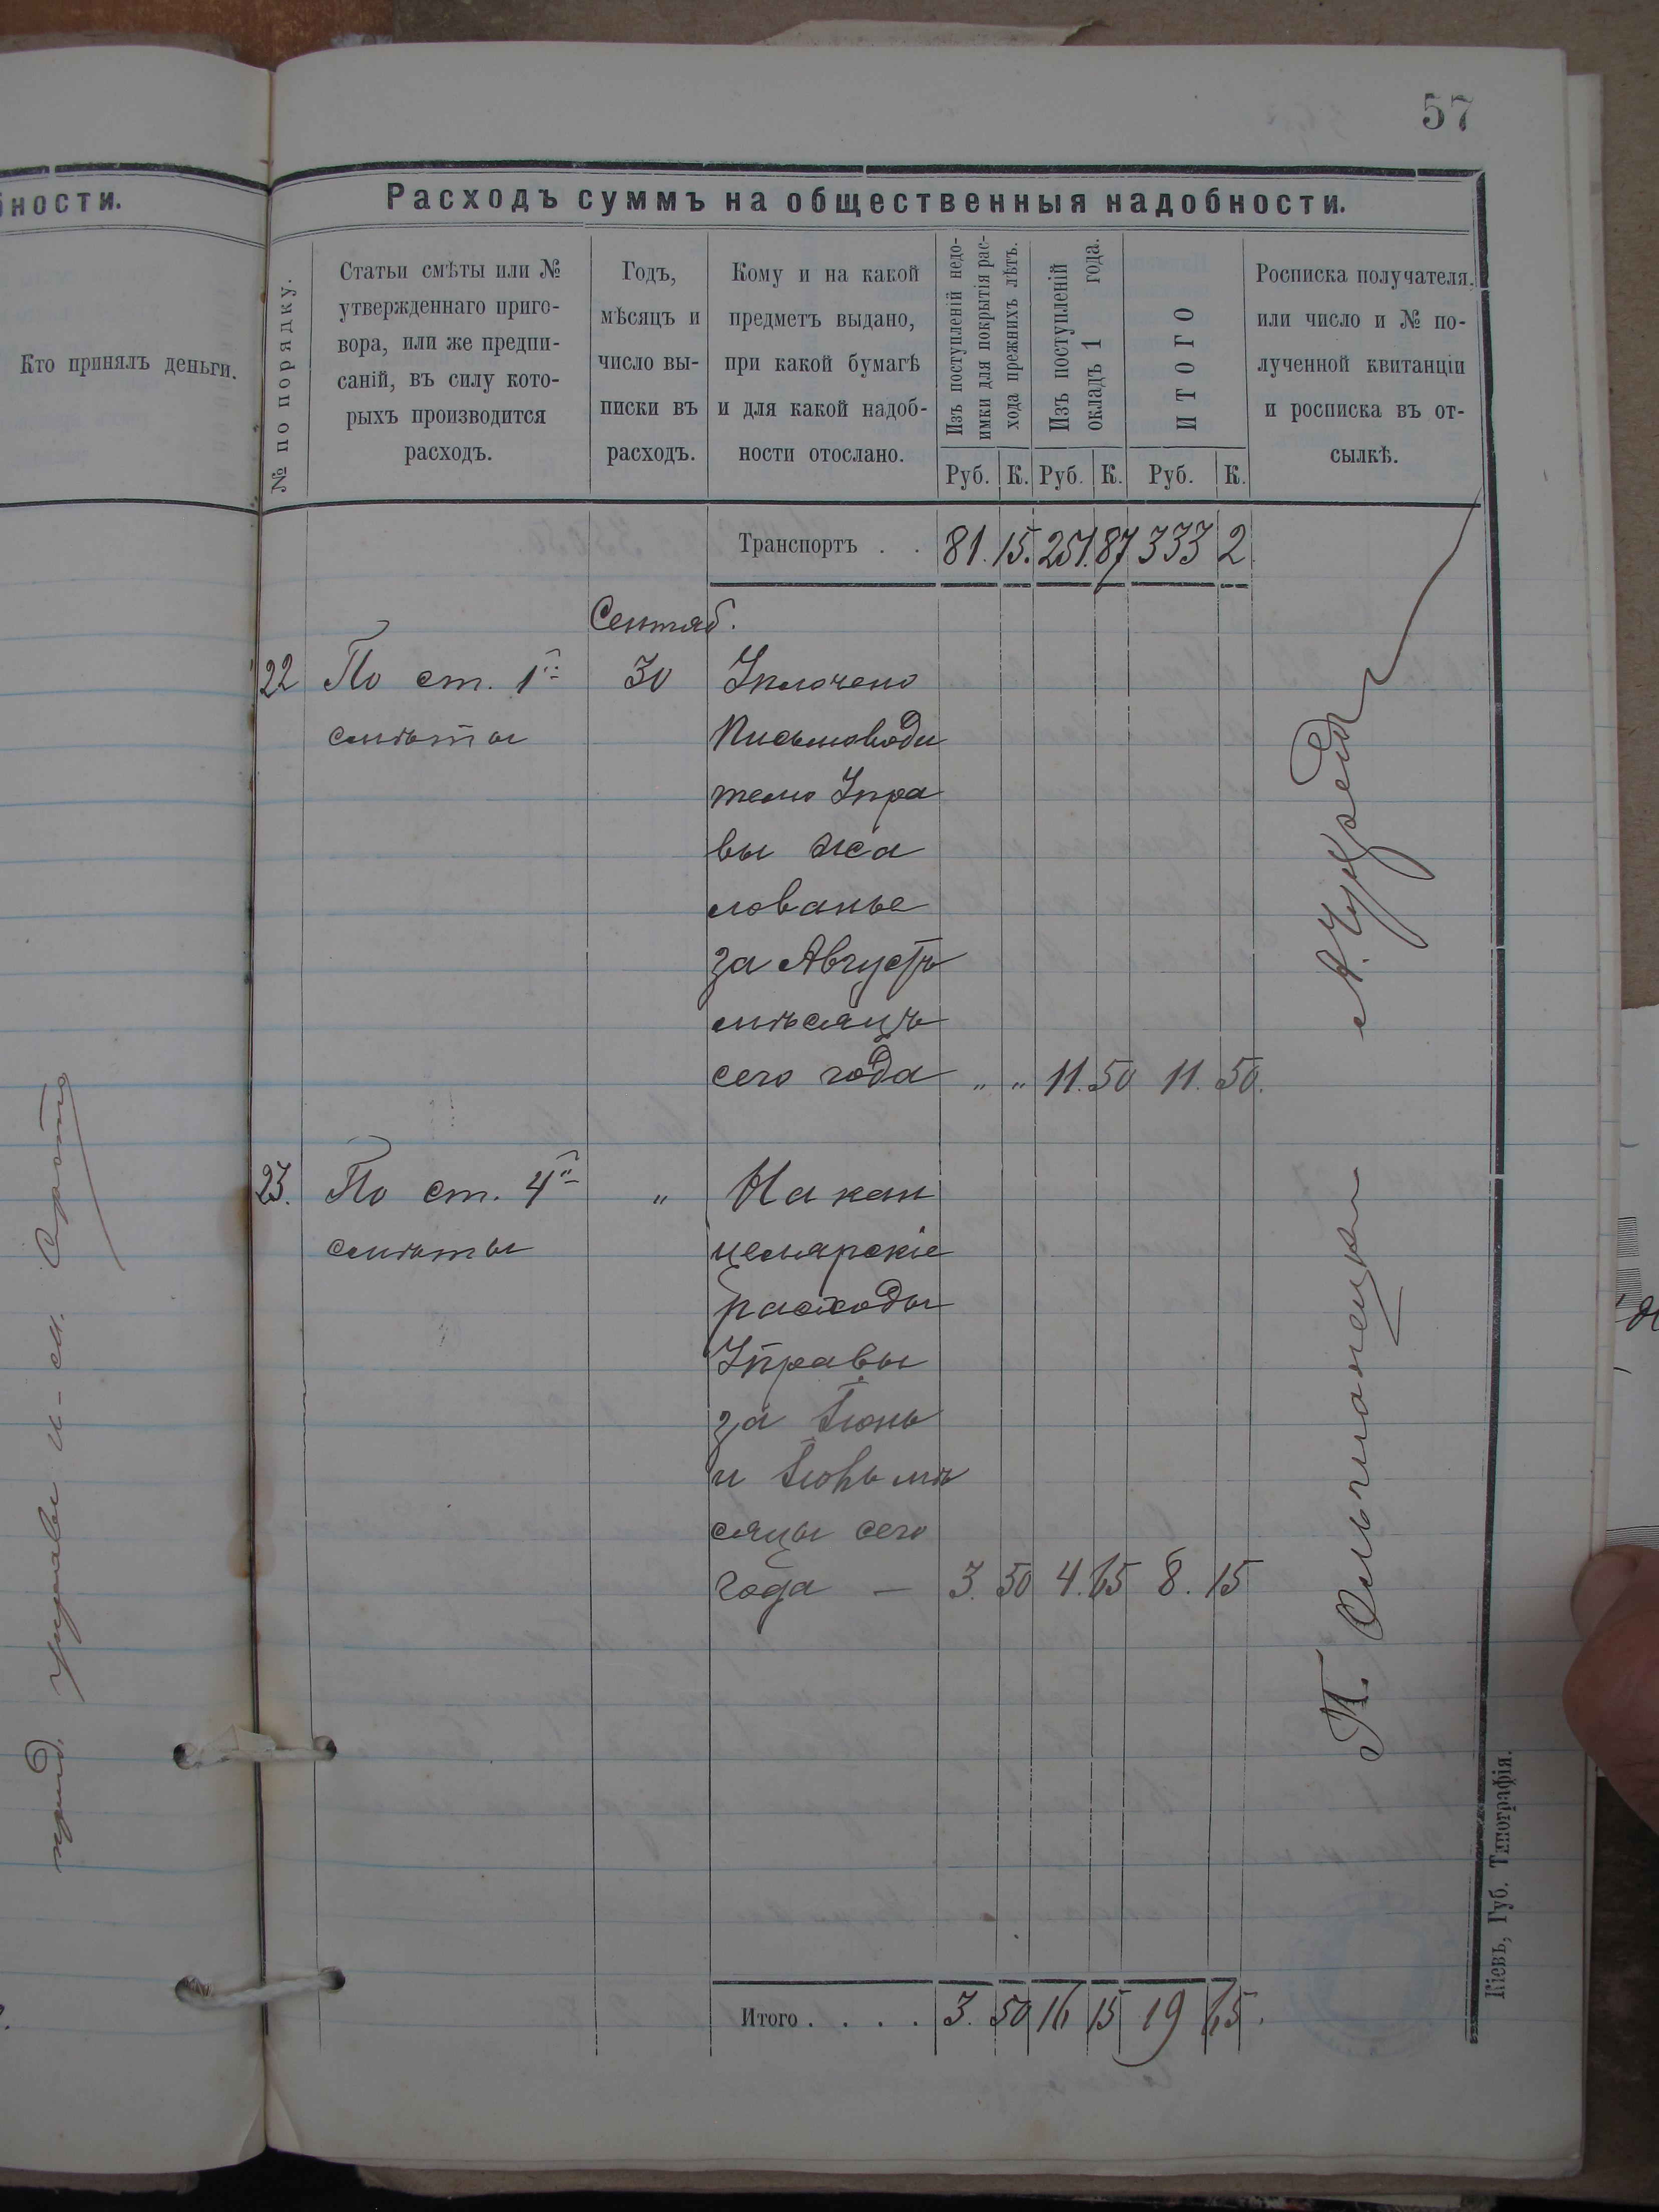 57
бности.
Кто принялъ деньги.
Расходъ суммъ на общественныя надобности.
№ по порядку.
Статьи смѣты или №
утвержденнаго приго-
вора, или же предпи-
саній, въ силу кото-
рыхъ производится
расходъ.
Годъ,
мѣсяцъ и
число вы-
писки въ
расходъ.
Кому и на какой
предметъ выдано,
при какой бумагѣ
и для какой надоб-
ности отослано.
Изъ поступленій недо-
имки для покрытія рас-
хода прежнихъ лѣтъ.
Изъ поступленій
окладъ 1 года.
ИТОГО
Росписка получателя,
или число и № по-
лученной квитанціи
и росписка въ от-
сылкѣ.
Руб. К. Руб. К. Руб. К.
Транспортъ . . 81. 15. 251. 87 333 2.
Сентяб.
22 По ст. 1й 30 Уплочено
смѣты Письмоводи
телю Упра
вы жа
лованье
за Августъ
мѣсяцъ
сего года „ „ 11. 50 11. 50.
23. По ст. 4й „ На кан
смѣты целярскіе
расходы
Управы
за Іюнь
и Іюль мѣ
сяцы сего
года — 3. 50 4. 65 8. 15
Итого . . . . 3. 50 16 15 19 65.
Кіевъ, Губ. Типографія.
управы и-м. Сирота